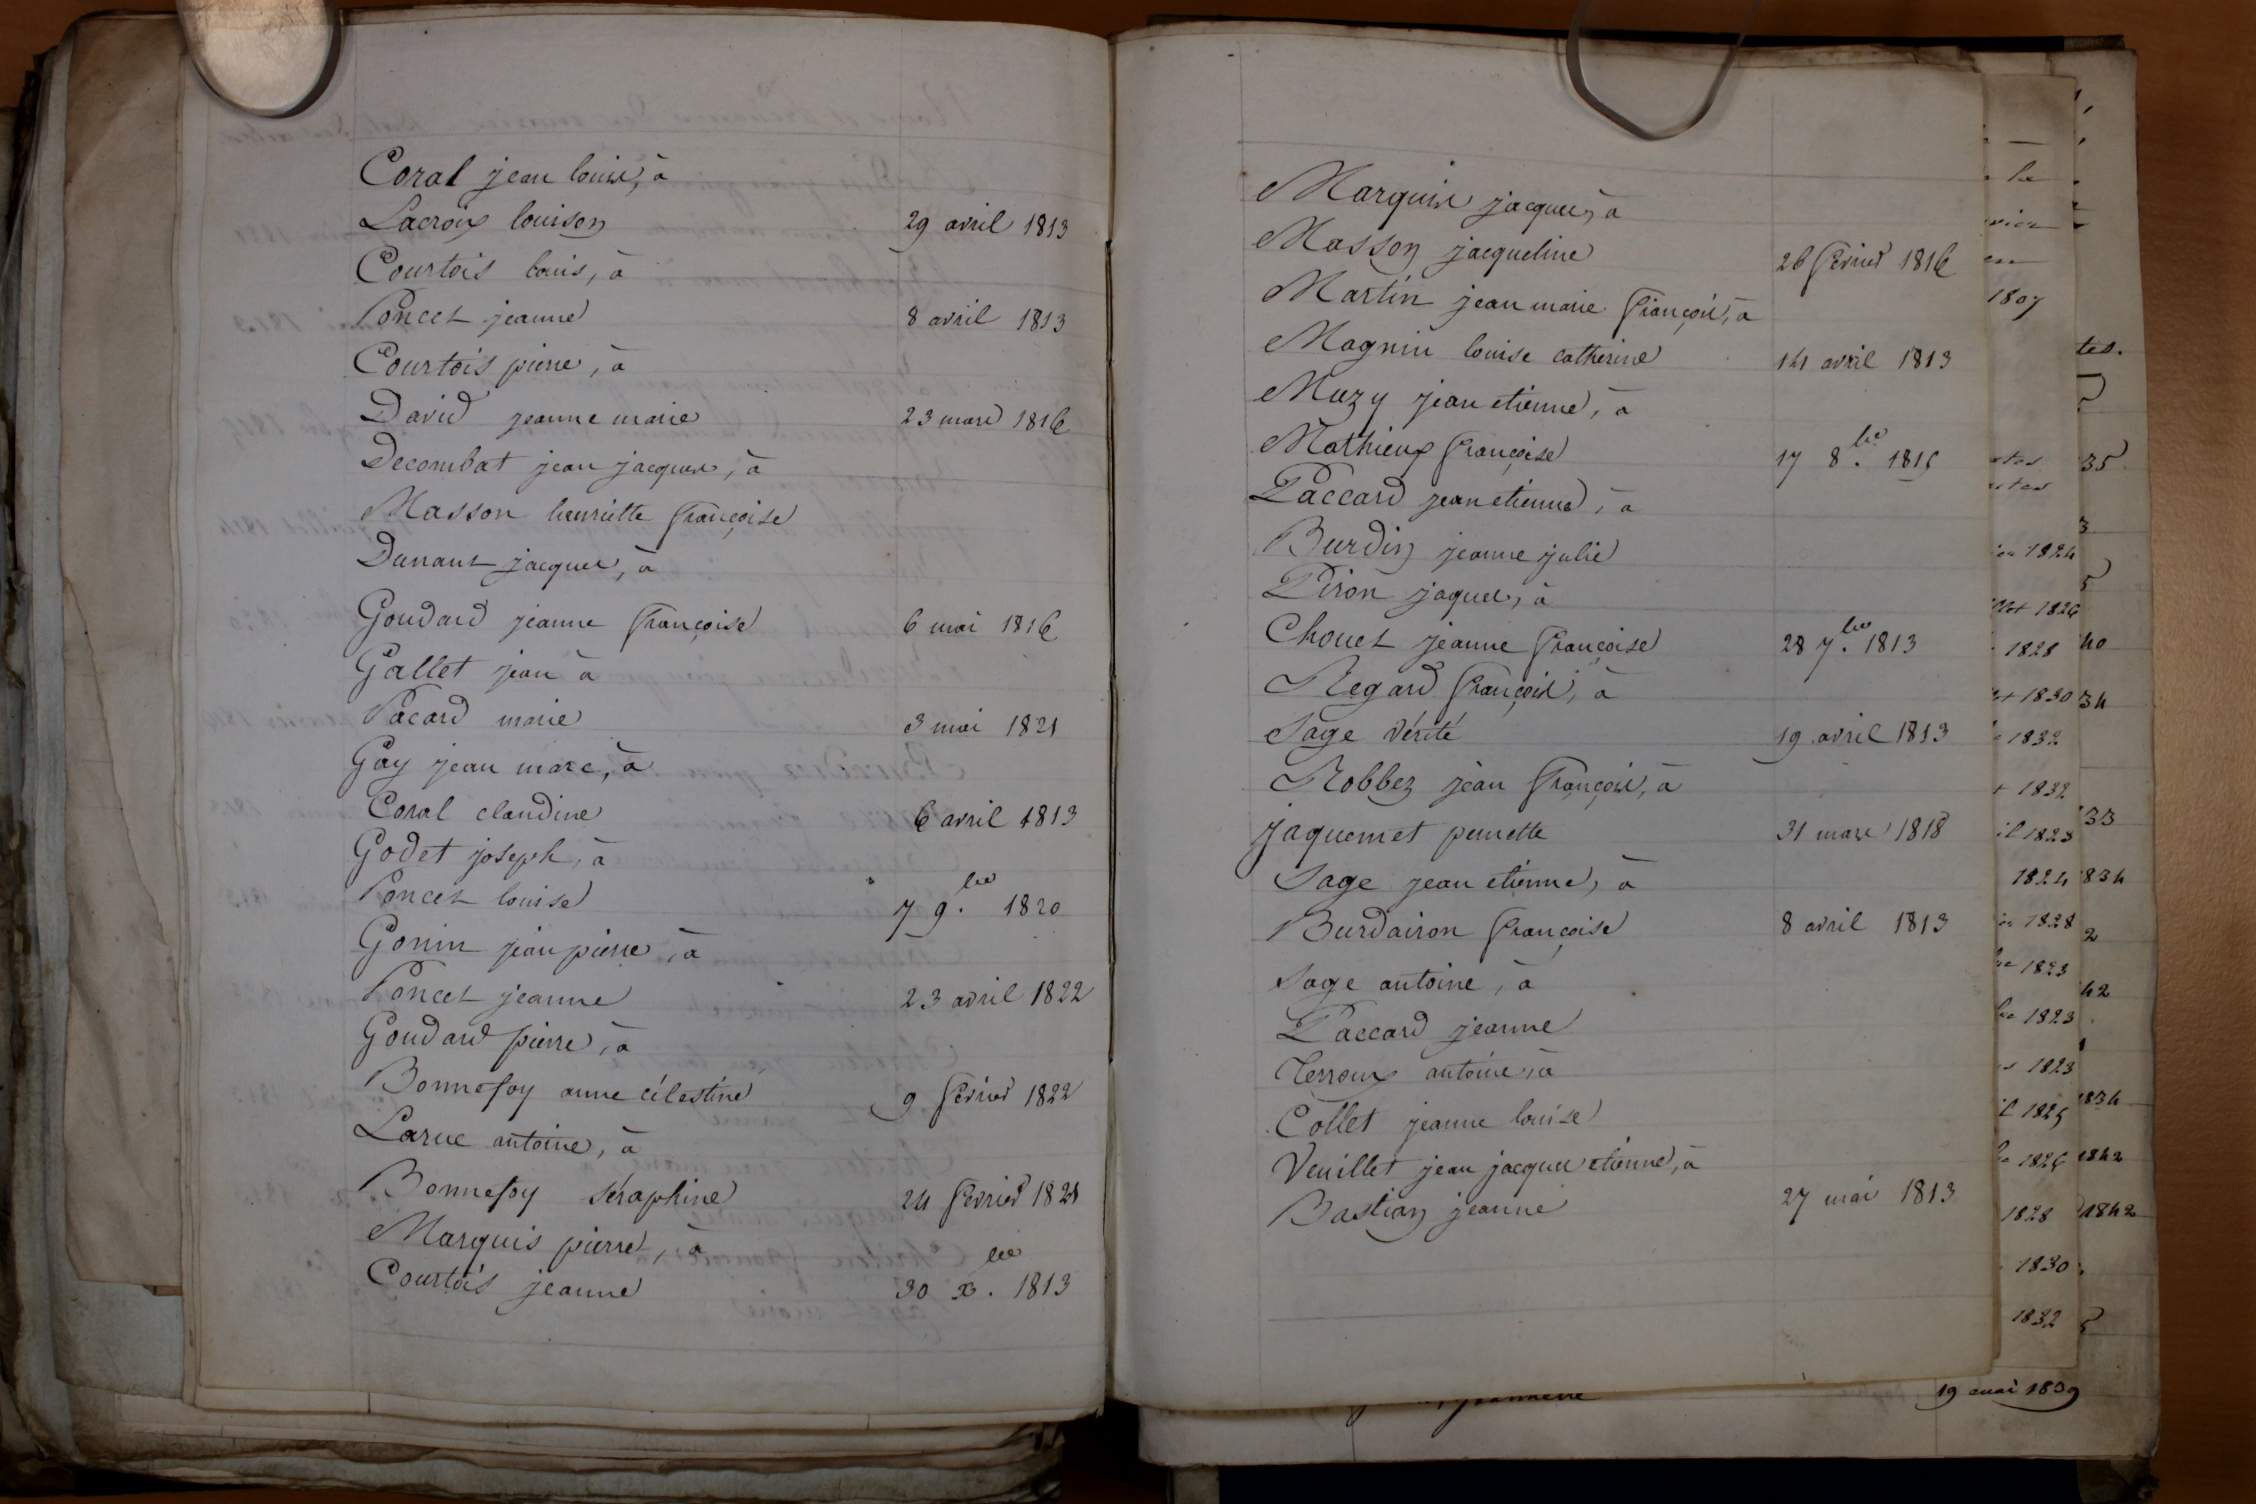 Coral jean louis, à
Lacroix louison 29 avril 1813
Courtois louis, à
Poncet jeanne 8 avril 1813
Courtois pierre, à
David jeanne marie 23 mars 1816
Decombat jean jacques, à
Masson henriette françoise
Dunant jacques, à
Goudard jeanne françoise 6 mai 1816
Gallet jean à
Pacard marie 3 mai 1821
Gay jean marc, à
Coral claudine 6 avril 1813
Godet joseph, à
Poncet louise 7 9.bre 1820
Gonin jean pierre, à
Poncet jeanne 23 avril 1822
Goudard pierre, à
Bonnefoy anne célestine 9 février 1822
Larue antoine, à
Bonnefoy séraphine 24 février 1821
Marquis pierre, à
Courtois jeanne 30 x.bre 1813
Marquis jacques, à
Masson jacqueline 26 février 1816
Martin jean marie françois, à
Magnin louise catherine 14 avril 1813
Muzy jean etienne, à
Mathieux françoise 17 8.bre 1815
Paccard jean etienne, à
Burdin jeanne julie
Piron jaques, à
Chouet jeanne françoise 28 7.bre 1813
Regard françois, à
Sage vérité 19 avril 1813
Robbez jean françois, à
jaquemet pernette 31 mars 1818
Sage jean etienne, à
Burdairon françoise 8 avril 1813
Sage antoine, à
Paccard jeanne
Terroux antoine, à
Collet jeanne louise
Veuillet jean jacques etienne, à
Bastian jeanne 27 mai 1813
1807
1824
1826
1828
1830
1832
1832
1823
1824
1828
1823
1823
1823
1825
1826
1828
1830
1832
19 mai 1839